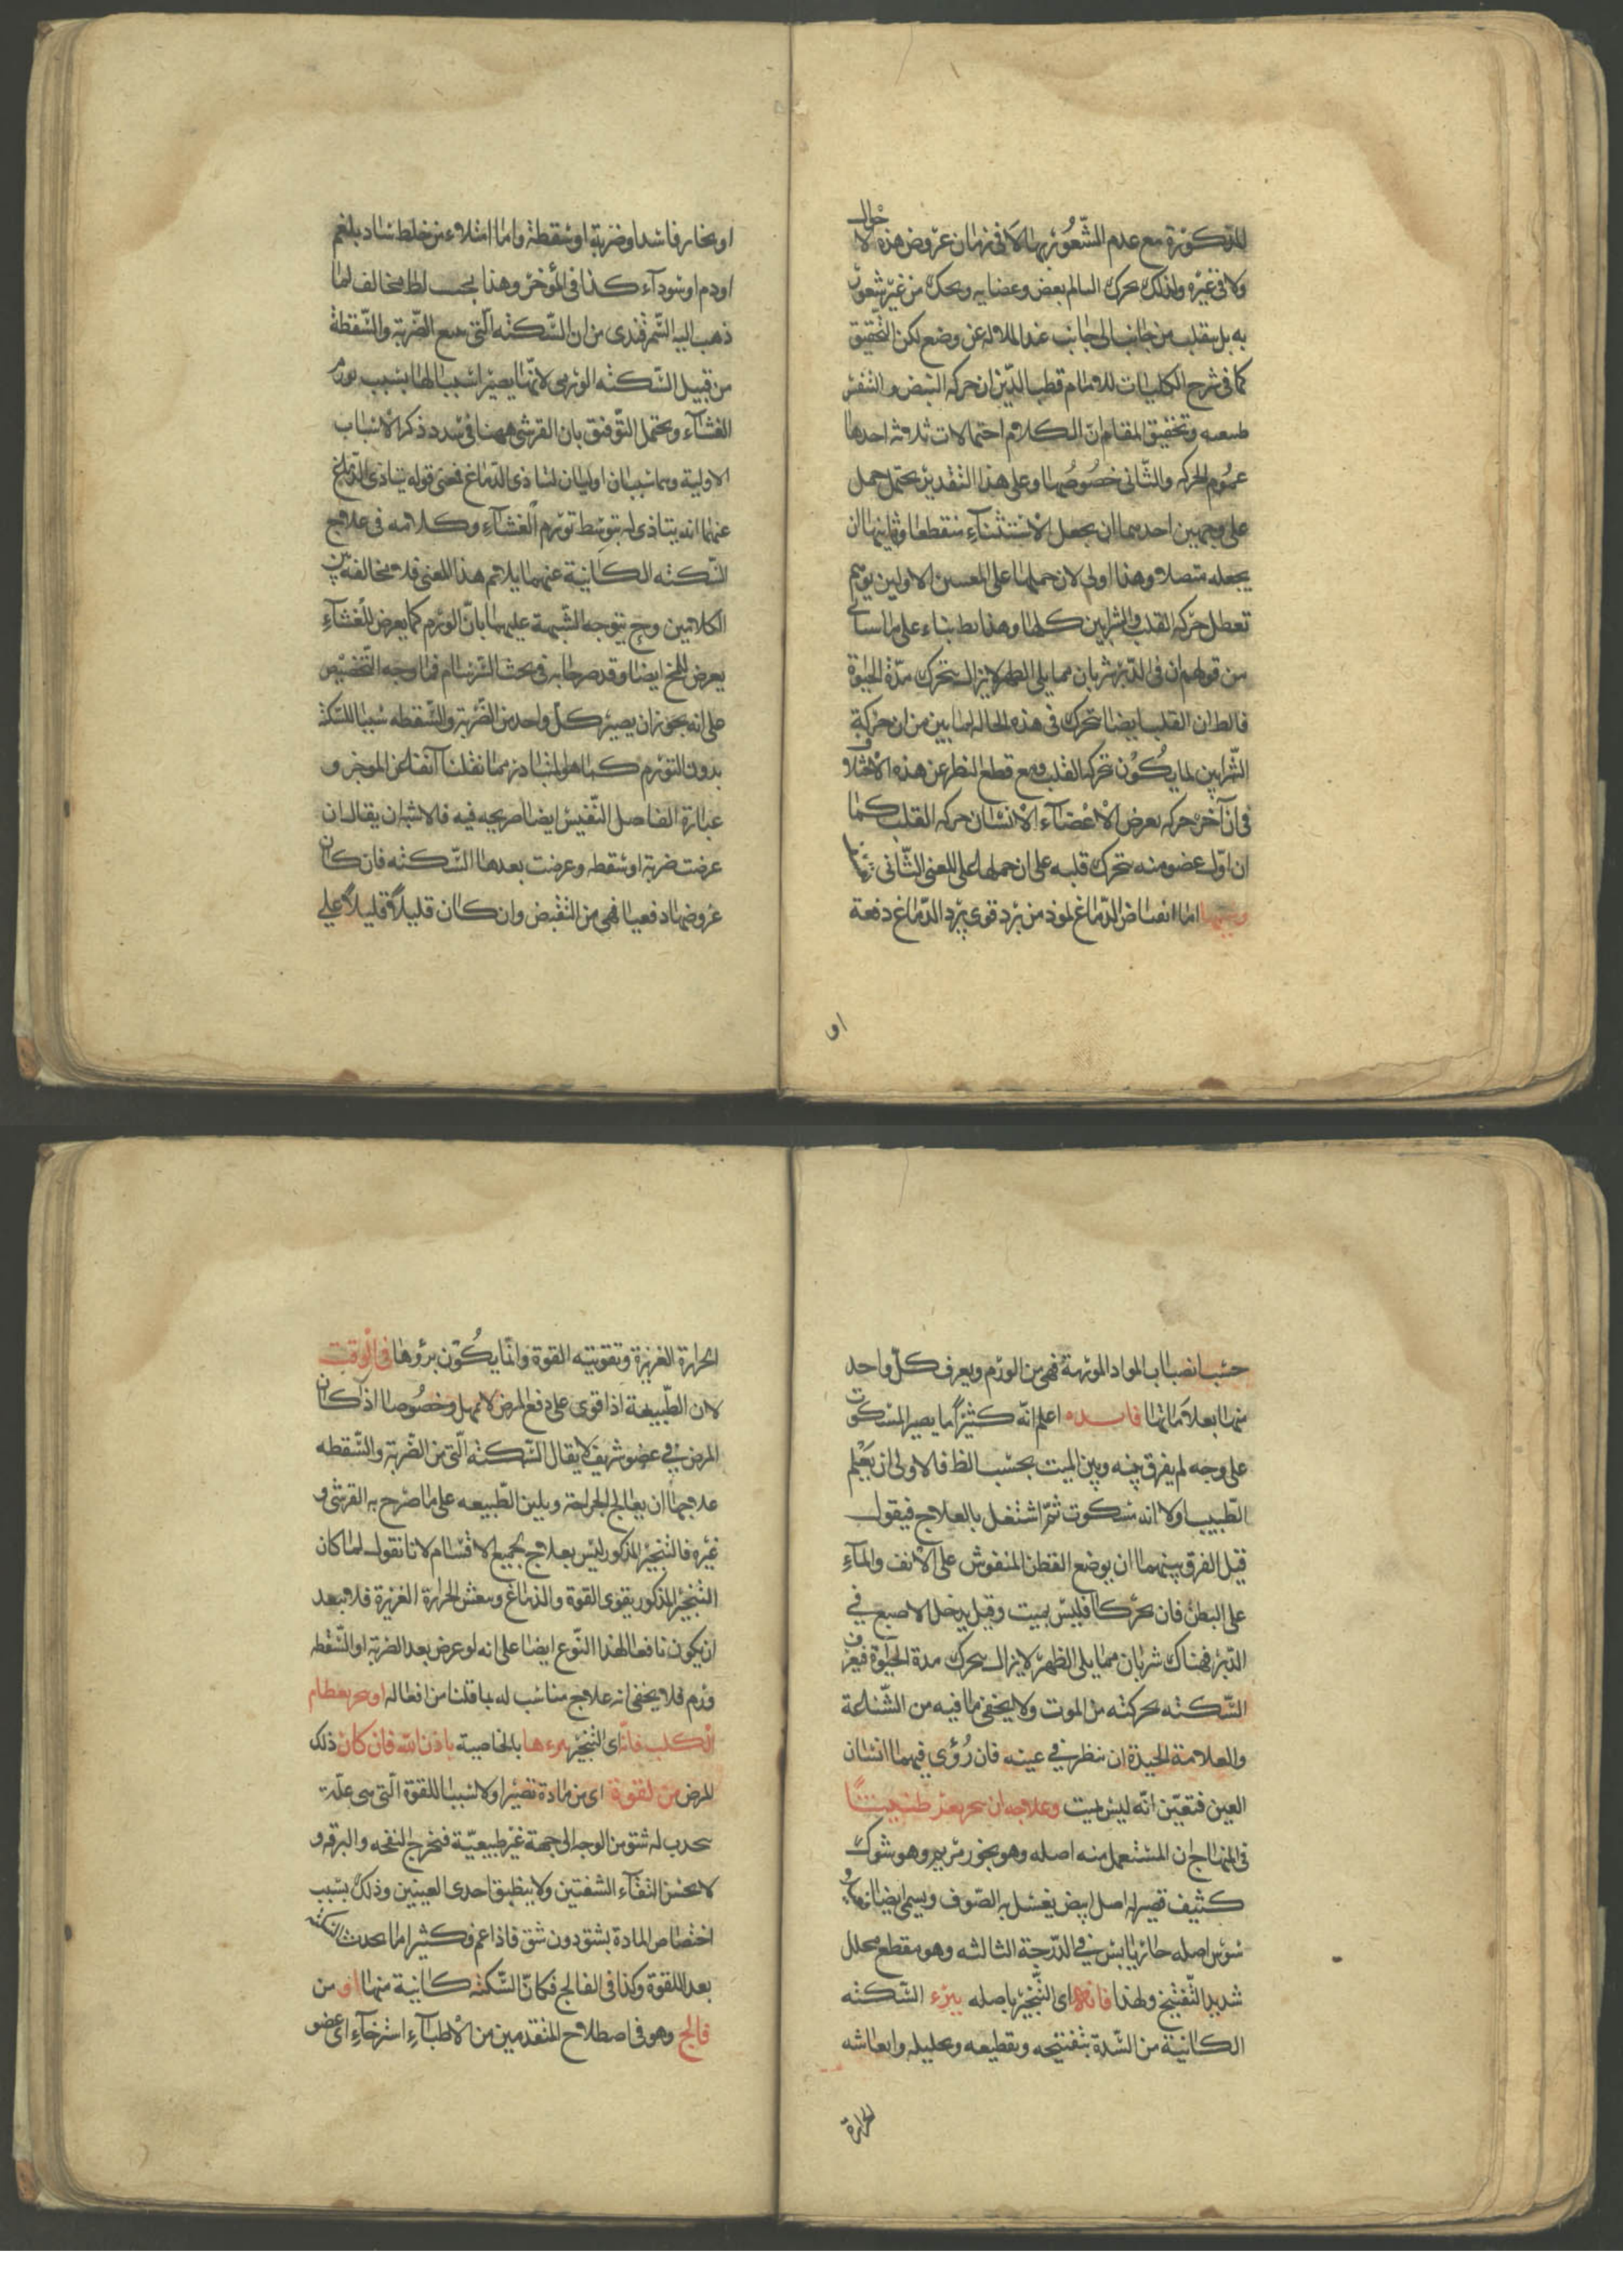 المذكورة مع عدم الشعور بها لا في زمان عروض هذه الحال
ولا في غيره ولذلك يحرك السالم بعض وعضايه ويحك من غير شعور
به بل يتقلب من جانب الى جانب عند الملالة عن وضع لكن التحقيق
كما في شرح الكليات للامام قطب الدين ان حركة النبض والتنفس
طبيعيه وتحقيق المقام ان الكلام احتمالات ثلاثة احدها
عموم الحركة والثاني خصوصها وعلى هذا التقدير يحتمل حمل
على وجهين احدهما ان يجعل الاستثناء منقطعا وثانيهما ان
يجعله متصلا وهذا اولى لان حملها على المعنيين الاولين يوهم
تعطل حركة القلب والشرايين كلها وهذا بط بناء على ما سيأتي
من قولهم ان في الدبر شريان مما يلي الظهر لا يزال يتحرك مدة الحيوة
فالظ ان القلب ايضا يتحرك في هذه الحالة لما بين من ان حركة
الشرايين لما يكون حركة القلب ومع قطع النظر عن هذه
في ان آخر حركة بعرض الاعضاء الانسان حركة القلب كما
ان اول عضو منه يتحرك قلبه على ان حملها على المعنى الثاني
وسببها اما انقباض الدماغ لموذ من برد قوى يبرد الدماغ دفعة
او
او بخار فاسد او ضربة او سقطة واما امتلاء من خلط ساد بلغم
او دم او سوداء كذا في المؤخر وهذا بحسب الظ مخالف لما
ذهب اليه السمرقندى من ان السكته التي تتبع الضربة والسقطة
من قبيل السكته الورمى لانهما يصير اسبابا لها بسبب تورم
الغشاء ويحتمل التوفيق بان القرشي ههنا في صدد ذكر الاسباب
الاولية وهما سببان اوليان لتاذى الدماغ فمعنى قوله يتاذى الدماغ
عنهما انه يتاذى له بتوسط تورم الغشاء وكلامه في علاج
السكته الكانية عنهما يلائم هذا المعنى فلا مخالفة بين
الكلامين وح يتوجه الشبهة عليهما بان الورم كما يعرض للغشاء
يعرض للمخ ايضا وقد صرحا به في بحث السرسام فما وجه التخصيص
على انه يجوز ان يصير كل واحد من الضربة والسقطه سببا للسكته
بدون التورم كما هو المتبادر مما نقلنا آنفا عن الموجز و
عبارة الفاضل النفيس ايضا صريحه فيه فالاشبه ان يقال ان
عرضت ضربة او سقطه وعرضت بعدها السكته فان كان
عروضها دفعيا فهي من التقبض وان كان قليلاً قليلاً على
حسب انصباب المواد المورمة فهي من الورم ويعرف كل واحد
منها بعلاماتها فايده اعلم انه كثيراً ما يصير المسكوت
على وجه لم يفرق بينه وبين الميت بحسب الظ فالاولى ان يعلم
الطبيب اولا انه مسكوت ثم اشتغل بالعلاج فيقول
قيل الفرق بينهما ان يوضع القطن المنفوش على الانف والماء
على البطن فان تحركا فليس بميت وقيل يدخل الاصبع في
الدبر فهناك شريان مما يلي الظهر لا يزال يتحرك مدة الحيوة فيعرف
السكته بحركته من الموت ولا يخفى ما فيه من الشناعة
والعلامة الجيدة ان ينظر في عينه فان رؤي فيهما انسان
العين فتعين انه ليس بميت وعلاجه ان
في المنهاج ان المستعمل منه اصله وهو بخور مريم وهو شوك
كثيف قصير له اصل ابيض يغسل به الصوف ويسمى ايضا
اصله حار يابس في الدرجة الثالثه وهو مقطع محلل
شديد التفتيح ولهذا فانه اى التبخير باصله يبرء السكته
الكانية من السدة بتفتيحه وتقطيعه وتحليله وانعاشه
الحرارة
الحرارة الغريزة وتقويته القوة وانما يكون برؤها في الوقت
لان الطبيعة اذا قوى على دفع المرض لا تمهل وخصوصا اذا كان
المرض في عضو شريف لا يقال السكته التي من الضربة والسقطه
علاجها ان يعالج الجراحة ويلين الطبيعه على ما صرح به القرشى و
غيره فالتبخير المذكور ليس بعلاج لجميع الاقسام لانا نقول لما كان
التبخير المذكور يقوى القوة والدماغ وينعش الحرارة الغريزة فلا تبعد
ان يكون نافعا لهذا النوع ايضا على انه لو عرض بعد الضربة او السقطه
ورم فلا يخفى انه علاج مناسب له بما قلنا من افعاله او بخر بعظام
الكلب فان اى التبخير يبرءها بالخاصية باذن الله فان كان ذلك
المرض من لقوة اى من مادة تصير اولا سببا للقوة التي هي علة
يتحدب له شق من الوجه الى جهة غير طبيعية فتخرج النفخه والبزقه و
لا يحسن التقاء الشفتين ولا ينطبق احدى العينين وذلك بسبب
اختصاص المادة بشق دون شق فاذا عم فكثيرا ما يحدث السكته
بعد اللقوة وكذا في الفالج فكان السكته كانية منها او من
فالج وهو في اصطلاح المتقدمين من الاطباء استرخاء اى عضو